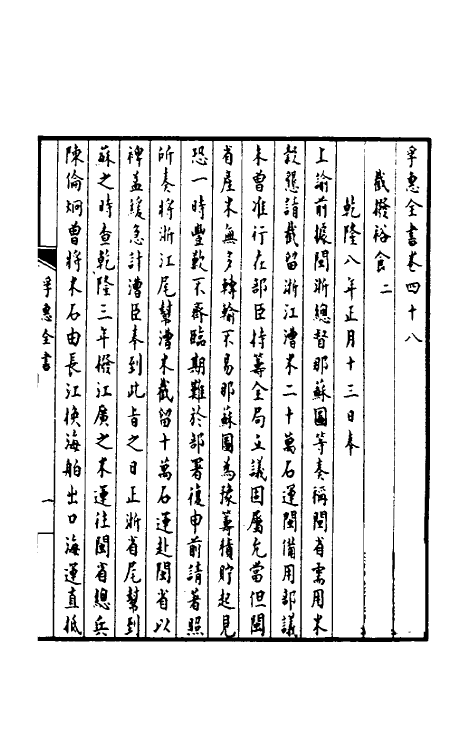 孚惠全書卷四十八
截撥裕食二
乾隆八年正月十三日奉
上諭前據閩浙總督那蘇圖等奏稱閩省需用米
穀懇請截留浙江漕米二十萬石運閩備用部議
未曾准行在部臣持籌全局立議固屬允當但閩
省產米無多轉輸不易那蘇圖為豫籌積貯起見
恐一時豐歉不齊臨期難於部署復申前請著照
所奏將浙江尾幫漕米截留十萬石運赴閩省以
裨蓋緩急計漕臣奉到此旨之日正浙省尾幫到
蘇之時查乾隆三年撥江廣之米運往閩省總兵
陳倫炯曾將米石由長江換海船出口海運直抵
孚惠全書
一